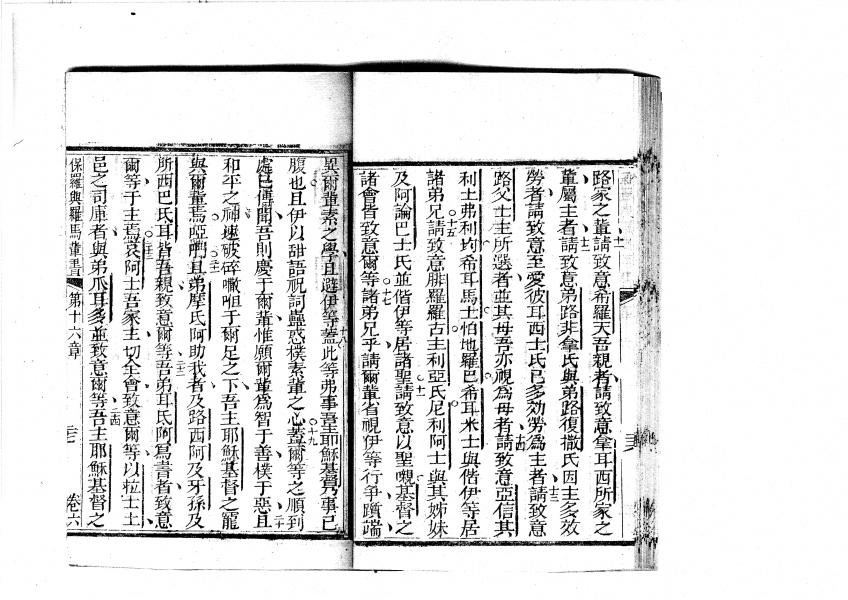 路家之輩請致意希羅天吾親者請致意拿耳西所家之
輩屬主者請致意弟路非拿氏與弟路復撒氏因主多效
勞者請致意至愛彼耳西士氏已多効勞爲主者請致意
路父士主所選者並其母吾亦視爲母者請致意亞信其
利土弗利均希耳馬士怕地羅巴希耳米士與偕伊等居
諸弟兄請致意腓羅羅古主利亞氏尼利阿士與其姊妹
及阿論巴士氏並偕伊等居諸聖請致意以聖嚫基督之
諸會皆致意爾等諸弟兄乎請爾輩省視伊等行爭躓端
異爾輩素之學且避伊等蓋此等弗事吾主耶穌基督乃事己
腹也且伊以甜語祝詞蠱惑樸素輩之心蓋爾等之順到
處已傳聞吾則慶于爾輩惟願爾輩爲智于善樸于惡且
和平之神速破碎㘔咀于爾足之下吾主耶穌基督之寵
與爾輩焉啞㗃且弟摩氏阿助我者及路西阿及牙孫及
所西巴氏耳皆吾親致意爾等吾弟耳氏阿爲書者致意
爾等于主焉家阿士吾家主一切全會致意爾等以拉士土
邑之司庫者與弟爪耳多並致意爾等吾主耶穌基督之
保羅與羅馬輩書 第十六章 卷六
十一
十二
十三
十四
十五
十六
十七
十八
十九
二十
二十一
二十二
二十三
二十四